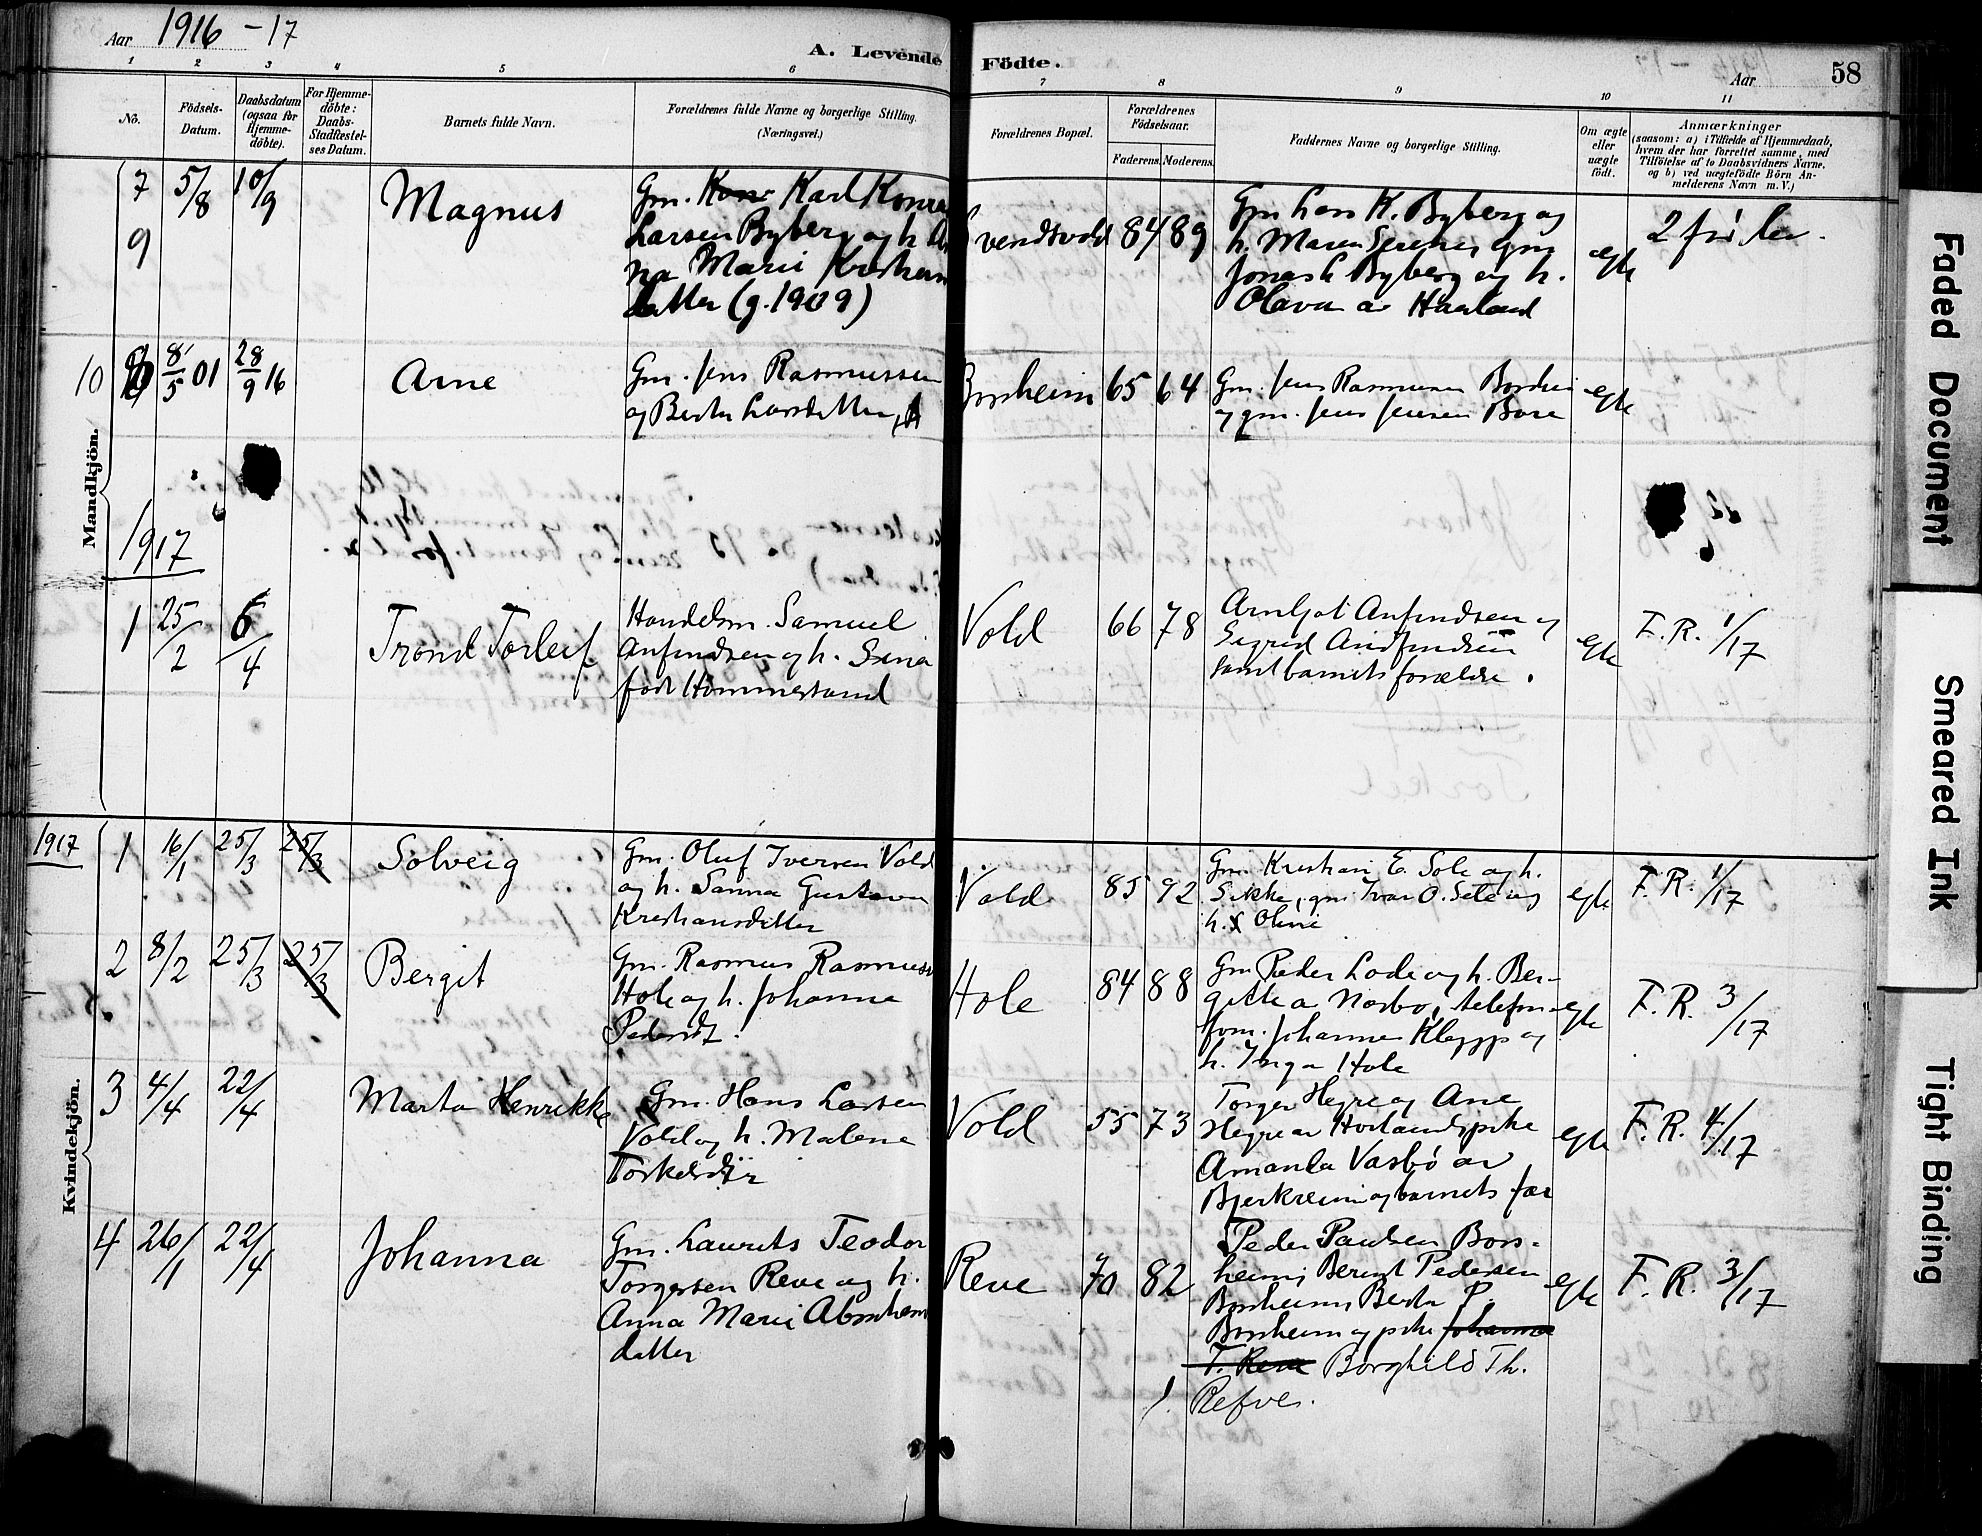 Aar 1916-17
A. Levende Födte.
Aar 58
1 2 3 4 5 6 7 8 9 10 11
No.
Födsels-Datum.
Daabsdatum (ogsaa for Hjemme-döbte).
For Hjemme-döbte: Daabs-Stadfæstel-ses Datum.
Barnets fulde Navn.
Forældrenes fulde Navne og borgerlige Stilling. (Næringsvei.)
Forældrenes Bopæl.
Forældrenes Födselsaar.
Faderens. Moderens.
Faddernes Navne og borgerlige Stilling.
Om ægte eller uægte födt.
Anmærkninger
(saasom: a) i Tilfælde af Hjemmedaab,
hvem der har forrettet samme, med
Tilföielse af to Daabsvidners Navne,
og b) ved uægtefödte Börn An-
melderens Navn m. V.)
Mandkjön.
7 9 5/8 10/9 Magnus
Gm. Karl Konra
Larsen Byberg og h. An
na Marie Kristians
datter (g. 1909)
84 89
Gm Lars K. Byberg og
h. Maren Serene, Gm
Jonas L Byberg og h.
Olava av Haaland
egte
10 8/5 01 28/9 16 Arne
Gm. Jens Rasmussen
og Berta Larsdatter
Borsheim 65 64
Gm. Jens Rasmussen
og gm. Jens Jensen Bore
egte
1917
1 25/2 6/4 Trond Torleif
Handelsm. Samuel
Anfindsen og h. Sina
født Hommersand
Vold 66 78
Arnljot Anfindsen og
Sigrid Anfindsen
samt barnets forældre.
egte F. R. 1/17
1917
Kvindekjön.
1 16/1 25/3 25/3 Solveig
Gm. Oluf Iversen Vold
og h. Sanna Gustava
Kristiansdatter
Vold 85 92
Gm. Kristian E. Sole og h.
Sikke, gm Ivar O. Sele og
h. Oline
egte F. R. 1/17
2 8/2 25/3 25/3 Bergit
Gm. Rasmus Rasmuss
Hole og h. Johanna
Pedersdt.
Hole 84 88
Gm Peder Lode og h. Ber-
gitte av Nærbø, telefon-
fom. Johannes Klepp og
h. Inga Hole
egte F. R. 3/17
3 4/4 22/4 Marta Henrikke
Gm. Hans Larsen
Vold og h. Malene
Torkelsdtr
Vold 55 73
Torger Hegre og Ane
Hegre av Høiland, pike
Amanda Vasbø av
Bjerkreim og barnets far
egte F. R. 4/17
4 26/1 22/4 Johanna
Gm. Laurits Teodor
Torgersen Reve og h.
Anna Marie Abraham
datter
Reve 70 82
Peder Paulsen Bors-
heim, Berent Pedersen
Borsheim Berta P.
Borsheim og pike Johanna
T. Reve Borghild Th.
Refve.
egte F. R. 3/17
Faded Document
Smeared Ink
Tight Binding